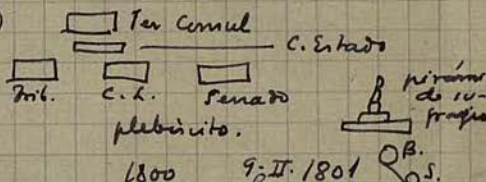 1er Consul
C. Estado
Trib. C. L. Senado
pirámi
de su-
fragio
plebiscito.
1800 9-II-1801
B.
S.